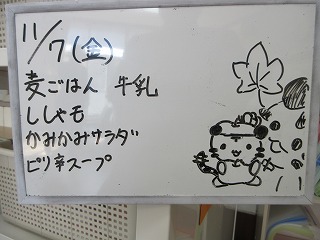 11/7(金)
麦ごはん 牛乳
ししゃモ
かみかみサラダ
ピリ辛スープ